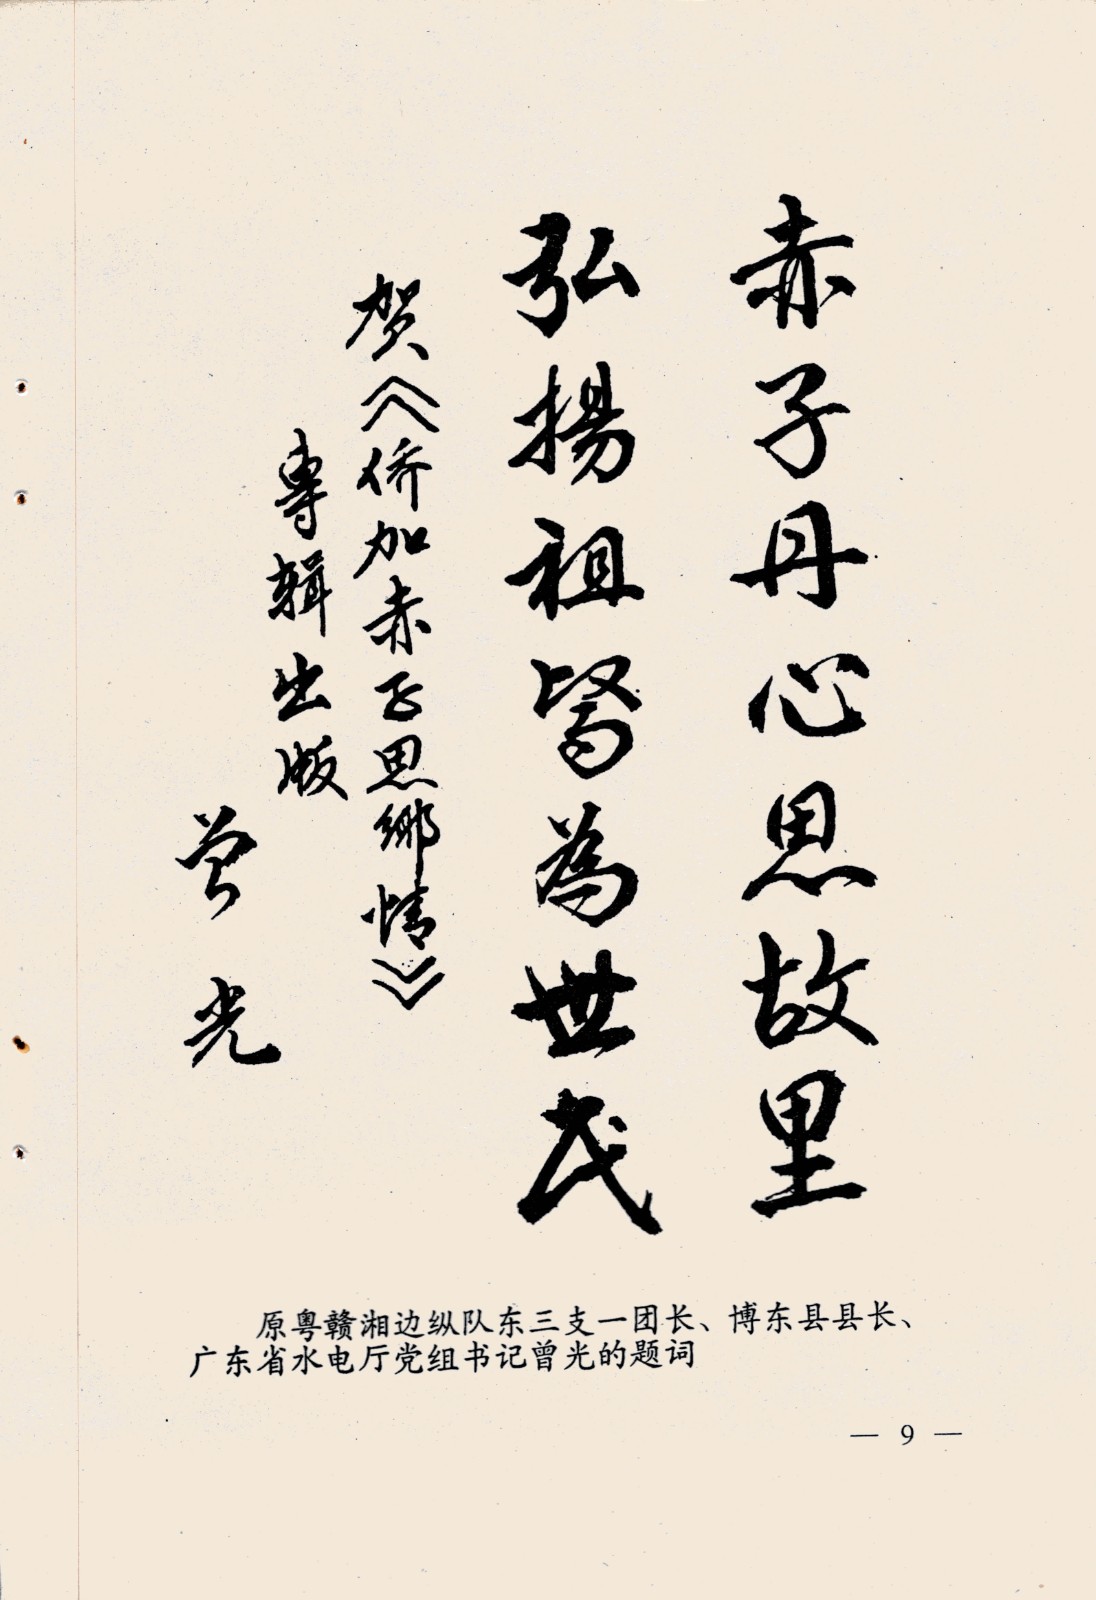 赤子丹心思故里
弘揚祖為世民
贺《侨加赤子思鄉情》
專輯出版
曾光
原粤赣湘边纵队东三支一团长、博东县县长、
广东省水电厅党组书记曾光的题词
— 9 —